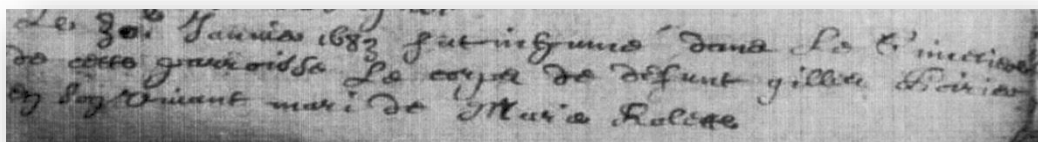 Le 30e Januier 1683 fut inhumé dans Le Cimetiere
de cette parroisse Le corps de defunt gilles Poirier
en son viuant mari de Marie